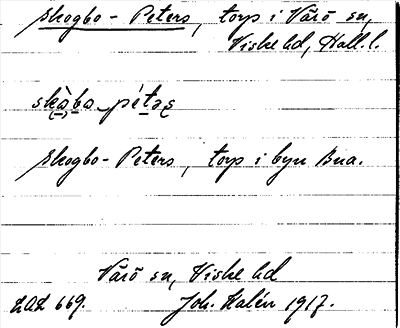 Skogbo-Peters, torp i Värö sn,
Viske hd, Hall. l.
Skogbo-Peters, torp i byn Bua.
Värö sn, Viske hd
669. Joh. Kalén 1917.